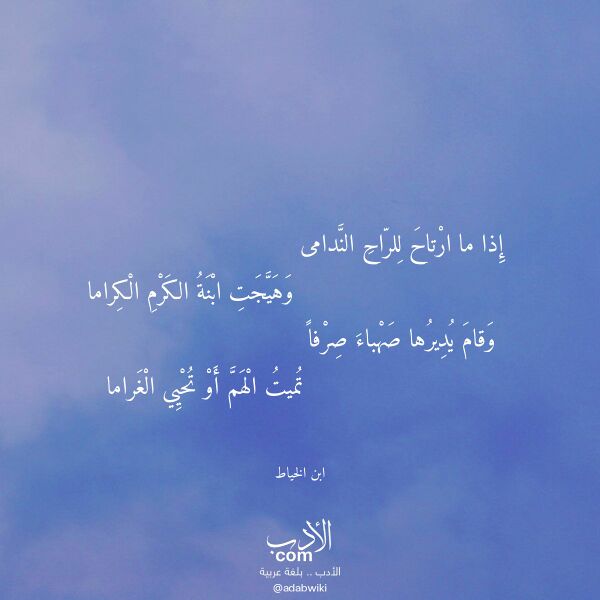 إِذا ما ارْتاحَ لِلرّاحِ النَّدامى
وَهَيَّجَتِ ابْنَةُ الكَرْمِ الْكِراما
وَقامَ يُدِيرُها صَهْباءَ صِرْفاً
تُميتُ الْهَمَّ أَوْ تُحْيِي الْغَراما
ابن الخياط
الأدب
com
الأدب .. بلغة عربية
@adabwiki